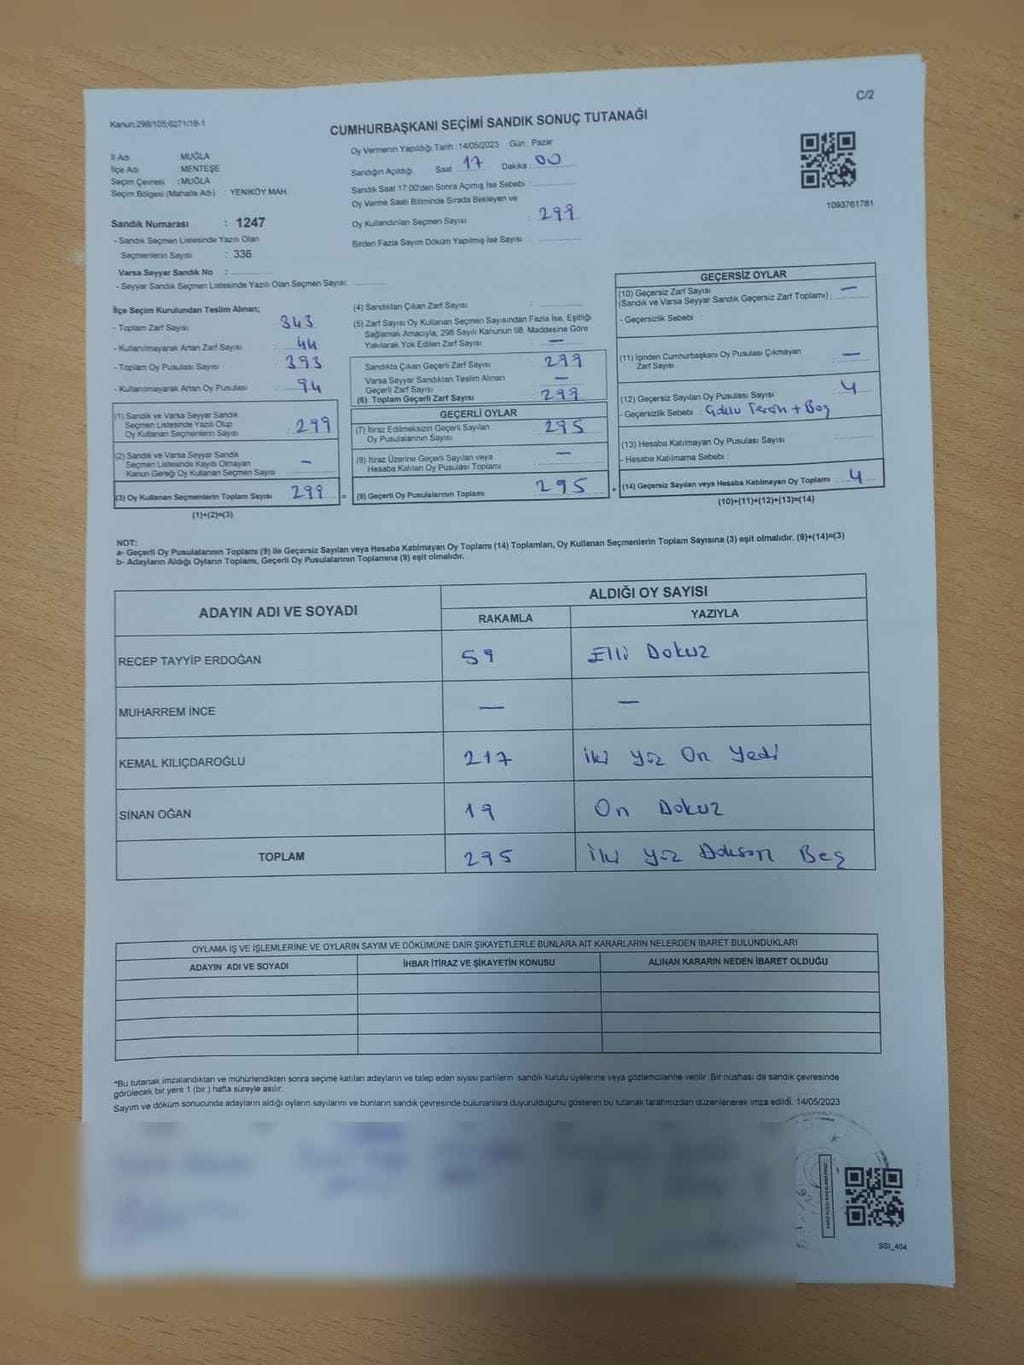 C/2
Kanun:298/105;6271/18-1
CUMHURBAŞKANI SEÇİMİ SANDIK SONUÇ TUTANAĞI
İl Adı : MUĞLA
İlçe Adı : MENTEŞE
Seçim Çevresi : MUĞLA
Seçim Bölgesi (Mahalle Adı) : YENİKÖY MAH.
Sandık Numarası : 1247
- Sandık Seçmen Listesinde Yazılı Olan
Seçmenlerin Sayısı : 336
Varsa Seyyar Sandık No :
- Seyyar Sandık Seçmen Listesinde Yazılı Olan Seçmen Sayısı:
Oy Vermenin Yapıldığı Tarih :14/05/2023 Gün : Pazar
Sandığın Açıldığı Saat 17 Dakika : 00
Sandık Saat 17:00'den Sonra Açılmış İse Sebebi :
Oy Verme Saati Bitiminde Sırada Bekleyen ve
Oy Kullandırılan Seçmen Sayısı : 299
Birden Fazla Sayım Döküm Yapılmış İse Sayısı :
1093761781
İlçe Seçim Kurulundan Teslim Alınan;
- Toplam Zarf Sayısı : 343
- Kullanılmayarak Artan Zarf Sayısı : 44
- Toplam Oy Pusulası Sayısı : 393
- Kullanılmayarak Artan Oy Pusulası : 94
(1) Sandık ve Varsa Seyyar Sandık
Seçmen Listesinde Yazılı Olup
Oy Kullanan Seçmenlerin Sayısı : 299
(2) Sandık ve Varsa Seyyar Sandık
Seçmen Listesinde Kayıtlı Olmayan
Kanun Gereği Oy Kullanan Seçmen Sayısı : -
(3) Oy Kullanan Seçmenlerin Toplam Sayısı : 299 =
(1)+(2)=(3)
(4) Sandıktan Çıkan Zarf Sayısı :
(5) Zarf Sayısı Oy Kullanan Seçmen Sayısından Fazla İse, Eşitliği
Sağlamak Amacıyla; 298 Sayılı Kanunun 98. Maddesine Göre
Yakılarak Yok Edilen Zarf Sayısı : —
Sandıkta Çıkan Geçerli Zarf Sayısı : 299
Varsa Seyyar Sandıktan Teslim Alınan
Geçerli Zarf Sayısı : —
(6) Toplam Geçerli Zarf Sayısı : 299
GEÇERLİ OYLAR
(7) İtiraz Edilmeksizin Geçerli Sayılan
Oy Pusulalarının Sayısı : 295
(8) İtiraz Üzerine Geçerli Sayılan veya
Hesaba Katılan Oy Pusulası Toplamı : —
(9) Geçerli Oy Pusulalarının Toplamı : 295 +
GEÇERSİZ OYLAR
(10) Geçersiz Zarf Sayısı
(Sandık ve Varsa Seyyar Sandık Geçersiz Zarf Toplamı) : —
- Geçersizlik Sebebi :
(11) İçinden Cumhurbaşkanı Oy Pusulası Çıkmayan
Zarf Sayısı : —
(12) Geçersiz Sayılan Oy Pusulası Sayısı : 4
- Geçersizlik Sebebi : + Boş
(13) Hesaba Katılmayan Oy Pusulası Sayısı :
- Hesaba Katılmama Sebebi :
(14) Geçersiz Sayılan veya Hesaba Katılmayan Oy Toplamı : 4
(10)+(11)+(12)+(13)=(14)
NOT:
a- Geçerli Oy Pusulalarının Toplamı (9) ile Geçersiz Sayılan veya Hesaba Katılmayan Oy Toplamı (14) Toplamları, Oy Kullanan Seçmenlerin Toplam Sayısına (3) eşit olmalıdır. (9)+(14)=(3)
b- Adayların Aldığı Oyların Toplamı, Geçerli Oy Pusulalarının Toplamına (9) eşit olmalıdır.
ADAYIN ADI VE SOYADI
ALDIĞI OY SAYISI
RAKAMLA YAZIYLA
RECEP TAYYİP ERDOĞAN 59 Elli Dokuz
MUHARREM İNCE — —
KEMAL KILIÇDAROĞLU 217 iki yüz On Yedi
SİNAN OĞAN 19 On Dokuz
TOPLAM 295 İki yüz Doksan Beş
OYLAMA İŞ VE İŞLEMLERİNE VE OYLARIN SAYIM VE DÖKÜMÜNE DAİR ŞİKAYETLERLE BUNLARA AİT KARARLARIN NELERDEN İBARET BULUNDUKLARI
ADAYIN ADI VE SOYADI İHBAR İTİRAZ VE ŞİKAYETİN KONUSU ALINAN KARARIN NEDEN İBARET OLDUĞU
*Bu tutanak imzalandıktan ve mühürlendikten sonra seçime katılan adayların ve talep eden siyasi partilerin sandık kurulu üyelerine veya gözlemcilerine verilir. Bir nüshası da sandık çevresinde
görülecek bir yere 1 (bir ) hafta süreyle asılır.
Sayım ve döküm sonucunda adayların aldığı oyların sayılarını ve bunların sandık çevresinde bulunanlara duyurulduğunu gösteren bu tutanak tarafımızdan düzenlenerek imza edildi. 14/05/2023
SSI_404